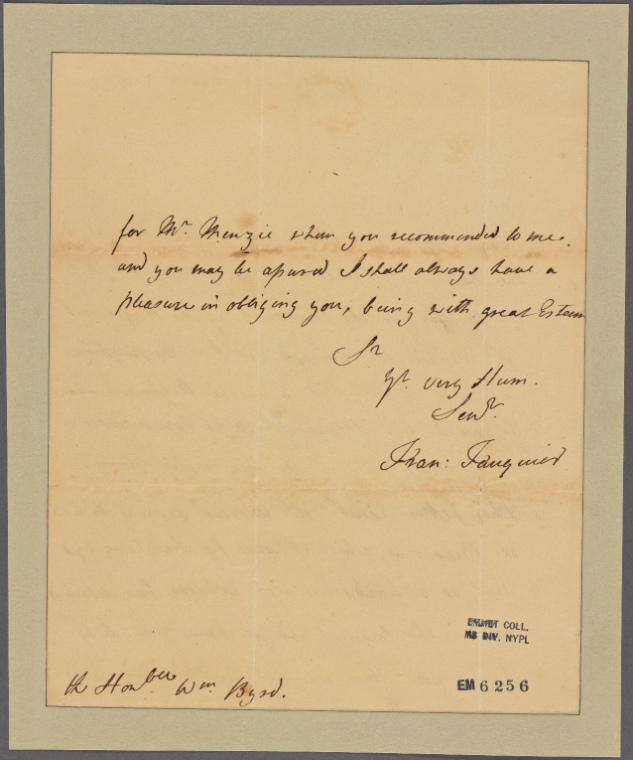 for Mr. Menzie whom you recommended to me.
and you may be assured I shall always have a
pleasure in obliging you, being with great Esteem
Sr
Yr. very Hum.
Servt.
Fran: Fauquier
EMMET COLL.
MS DIV. NYPL
EM 6256
the Honble Wm Byrd.